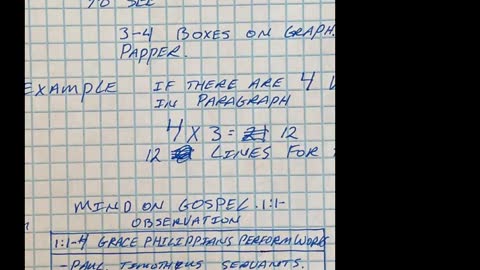 3-4 BOXES ON GRAPH
PAPPER.
EXAMPLE IF THERE ARE 4
IN PARAGRAPH
4 X 3 = 12
12 LINES FOR
MIND ON GOSPEL. 1:1-
OBSERVATION
1:1-4 GRACE PHILIPPIANS PERFORM WORK
- PAUL TIMOTHEUS SERVANTS.